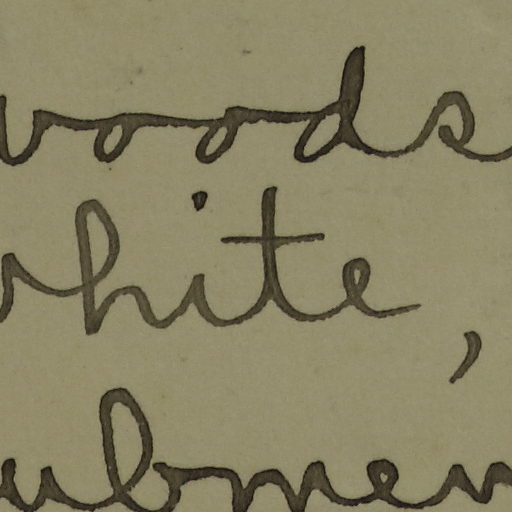 woods
white,
ubmen